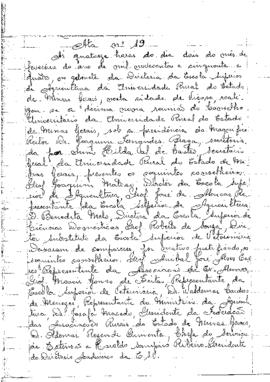 Ata nº 19
Às quatorze horas do dia dois do mês de
fevereiro do ano de mil novecentos e cinquenta e
quatro, no gabinete da Diretoria da Escola Superior
de Agricultura da Universidade Rural do Estado
de Minas Gerais, nesta cidade de Viçosa, reali-
zou-se a décima nona reunião do Conselho
Universitário da Universidade Rural do Estado
de Minas Gerais, sob a presidência do Magnífico
Reitor Dr. Joaquim Fernandes Braga, secreta-
Geral da Universidade Rural do Estado de Mi-
nas Gerais, presentes os seguintes conselheiros:
Prof. Joaquim Matoso, Diretor da Escola Supe-
rior de Agricultura, Prof. José de Alencar, Re-
presentante da Escola Superior de Agricultura,
D. Benedita Melo, Diretora da Escola Superior de
Ciências Domésticas, Prof. Roberto de Souza, Dire-
tor substituto da Escola Superior de Veterinária.
Deixaram de comparecer, por motivo justificado, os
seguintes conselheiros: Prof. Anibal José
Representante da Associação de Ex-Alunos,
Prof. Moacir Gomes de Freitas, Representante da
Escola Superior de Veterinária, Dr. Waldemar Cardoso
de Menezes, Representante do Ministério da Agricul-
tura, Dr. Josafá Macedo, Presidente da Federação
das Associações Rurais do Estado de Minas Gerais,
D. Ademar Resende Pimenta, Chefe do Serviço
e Ronaldo Sampaio Ribeiro, Presidente
do Diretório Acadêmico da